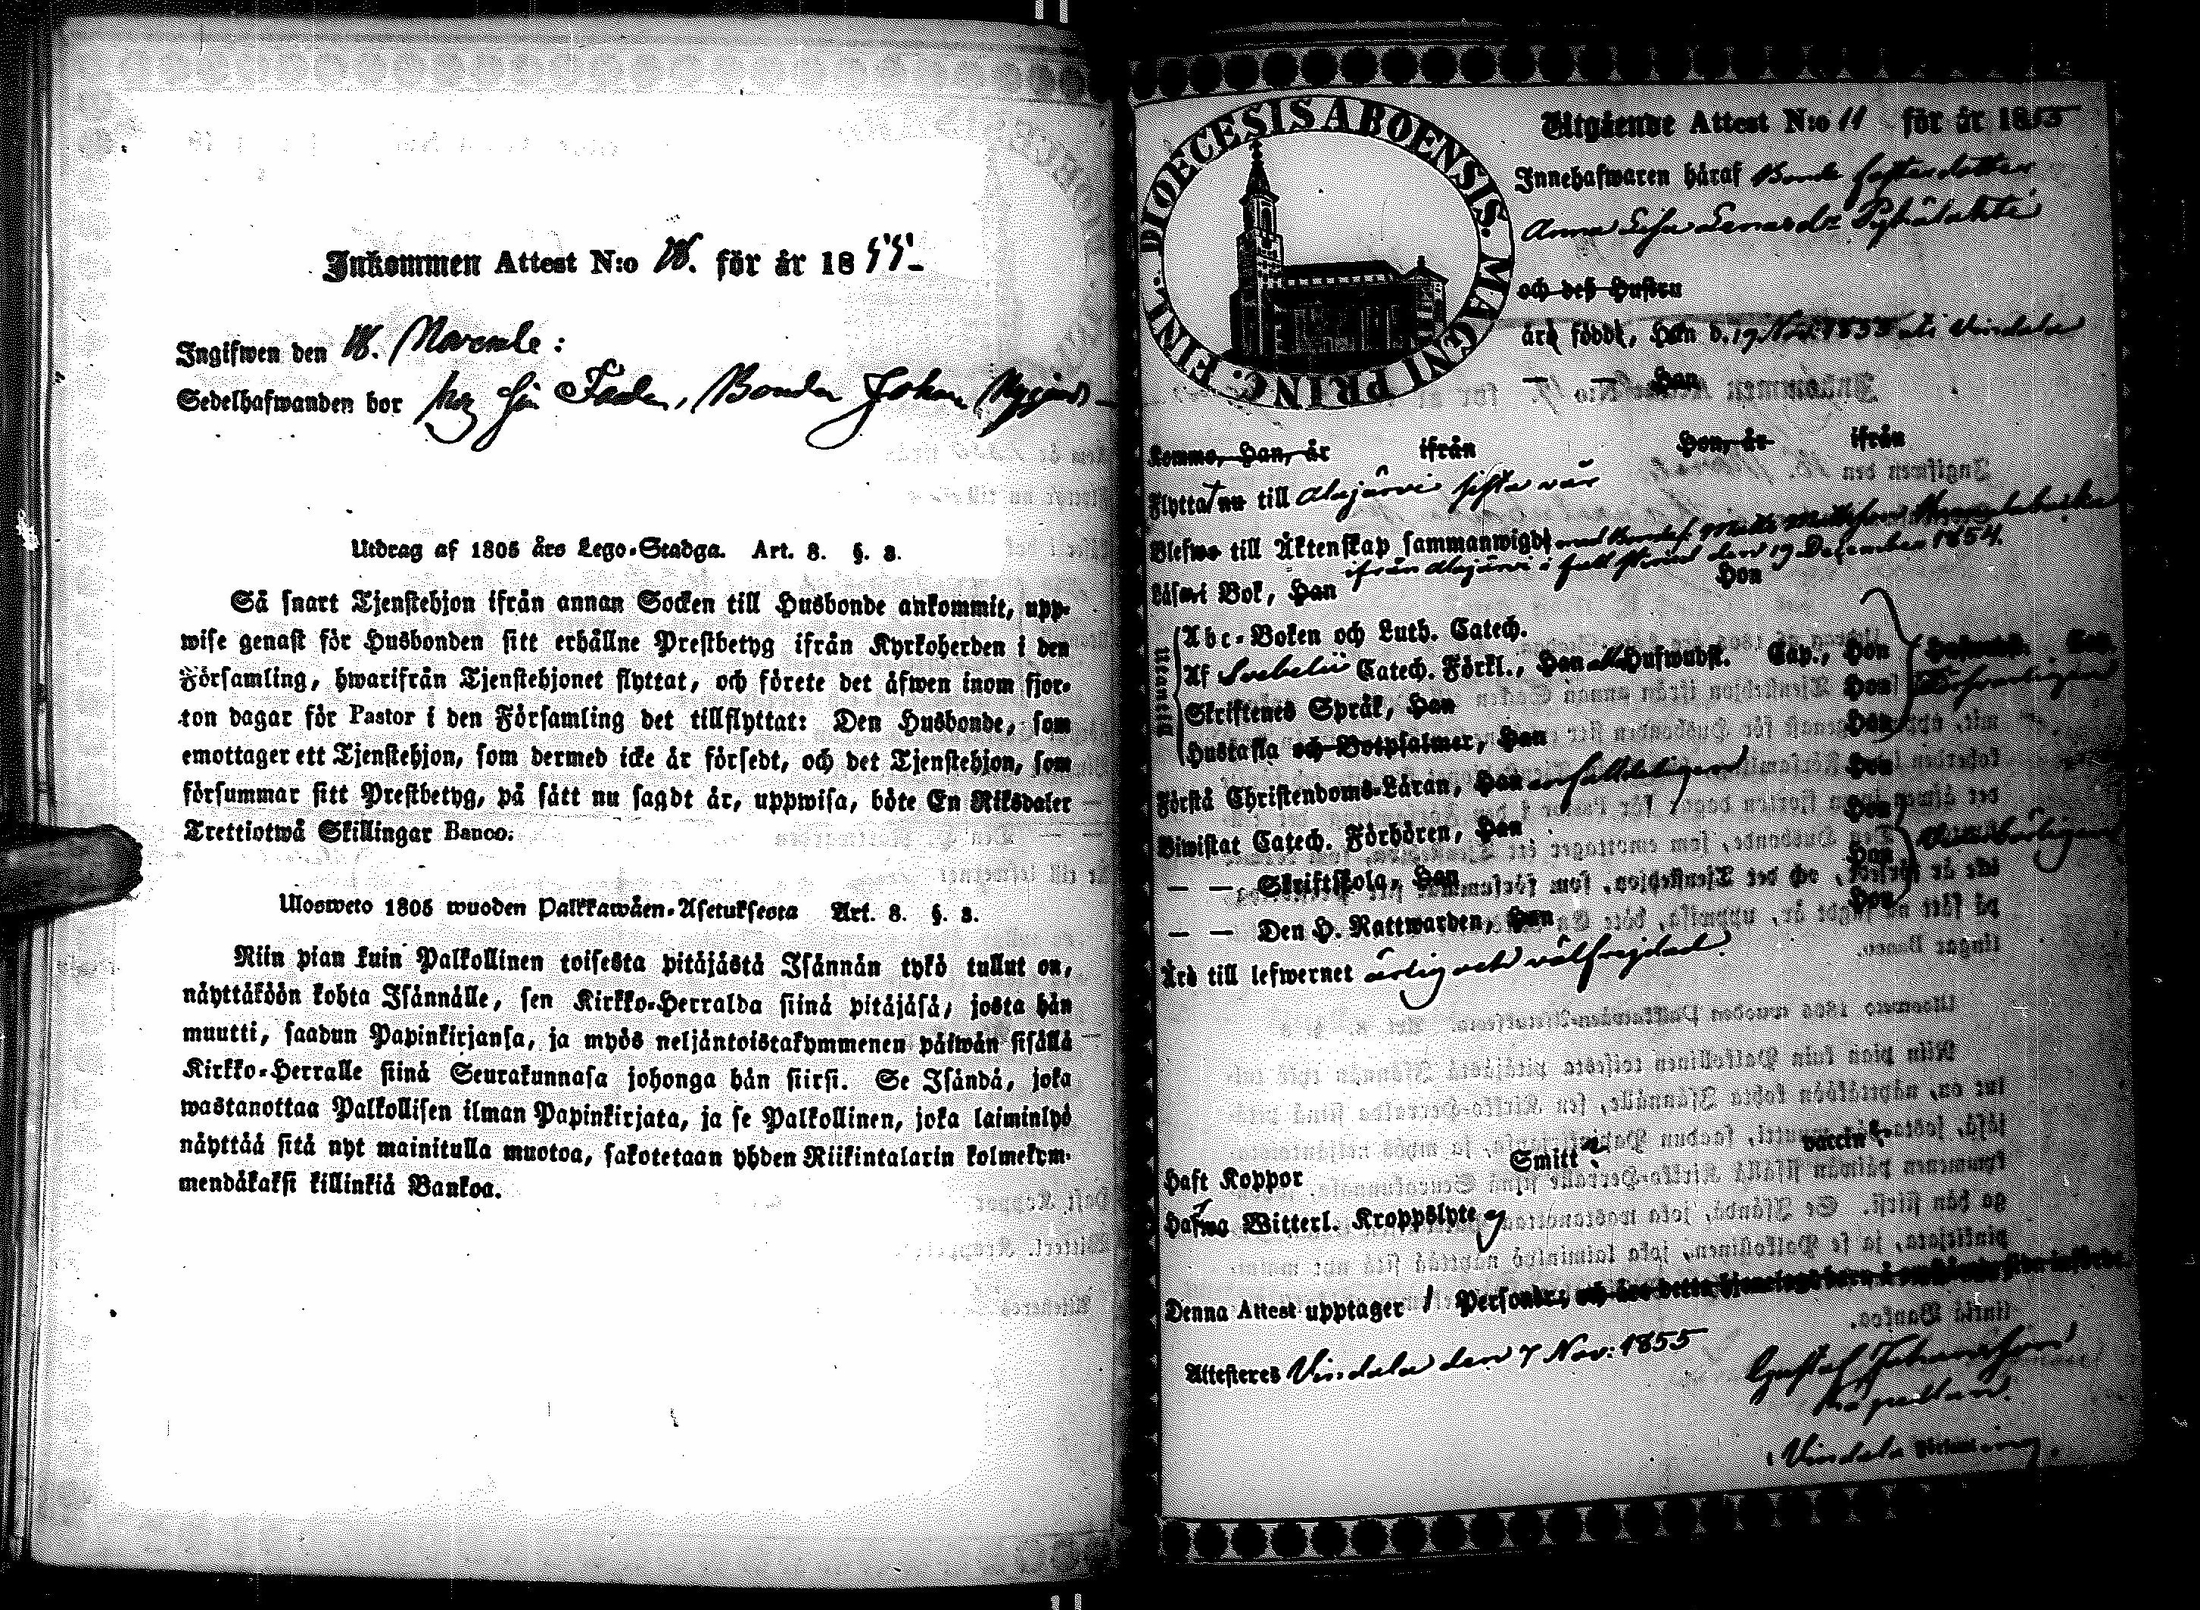 Inkommen Attest N:o 18. för år 1855
Ingifwen den 18. Novemb:
Sedelhafwanden bor hos sin Fader, Bonden Johan
Utdrag af 1805 års Lego-Stadga. Art. 8. §. 3.
Så snart Tjenstehjon ifrån annan Socken till Husbonde ankommit, upp-
wise genast för Husbonden sitt erhållne Prestbetyg ifrån Kyrkoherden i den
Församling, hwarifrån Tjenstehjonet flyttat, och förete det äfwen inom fjor-
ton dagar för Pastor i den Församling det tillflyttat: Den Husbonde, som
emottager ett Tjenstehjon, som dermed icke är försedt, och det Tjenstehjon, som
försummar sitt Prestbetyg, på sätt nu sagdt är, uppwisa, böte En Riksdaler
Trettiotwå Skillingar Banco.
Ulosweto 1805 wuoden Palkkawäen-Asetuksesta Art. 8. §. 3.
Niin pian kuin Palkollinen toisesta pitäjästä Isännän tykö tullut on,
näyttäköön kohta Isännälle, sen Kirkko-Herralda siinä pitäjäsä, josta hän
muutti, saadun Papinkirjansa, ja myös neljäntoistakymmenen päiwän sisällä
Kirkko-Herralle siinä Seurakunnasa johonga hän siirsi. Se Isändä, joka
wastanottaa Palkollisen ilman Papinkirjata, ja se Palkollinen, joka laiminlyö
näyttää sitä nyt mainitulla muotoa, sakotetaan yhden Riikintalarin kolmekym-
mendäkaksi killinkiä Bankoa.
DIOECESIS ABOENSIS. MAGNI PRINC. FINL.
Utgående Attest N:o 11 för år 1855
Innehafwaren häraf Bonde
Anna Lisa Lenardsdr
och deß Hustru
äro född, Han d. 19 Nov. 1835 i Vindala
— — Han
Komme, Han, år ifrån Hon, år ifrån
Flyttat nu till Alajärvi sista vår
Blefwo till Äktenskap sammanwigd med Bondes. Matts Mattsson
ifrån Alajärvi i den 19 December 1854.
Läser i Bok, Han Hon
Utantill
Abc-Boken och Luth. Catech.
Af Svebelii Catech. Förkl., Han Hufwudst. Cap., Hon
Skriftenes Språk, Han Hon försvarligen
Hustafla och Botpsalmer, Han Hon
Förstå Christendoms-Läran, Han enfalldeligen Hon
Biwistat Catech. Förhören, Han Hon
— — Skriftskola, Han Hon
— — Den H. Nattwarden, Han Hon
Äro till lefwernet ärlig och välfrejdad.
Haft Koppor Smitt vaccin
Hafwa Witterl. Kroppslyte ej
Denna Attest upptager 1 Person
Attesteres Vindala den 7 Nov: 1855
Gustaf Johansson
Kapellan.
i Vindala